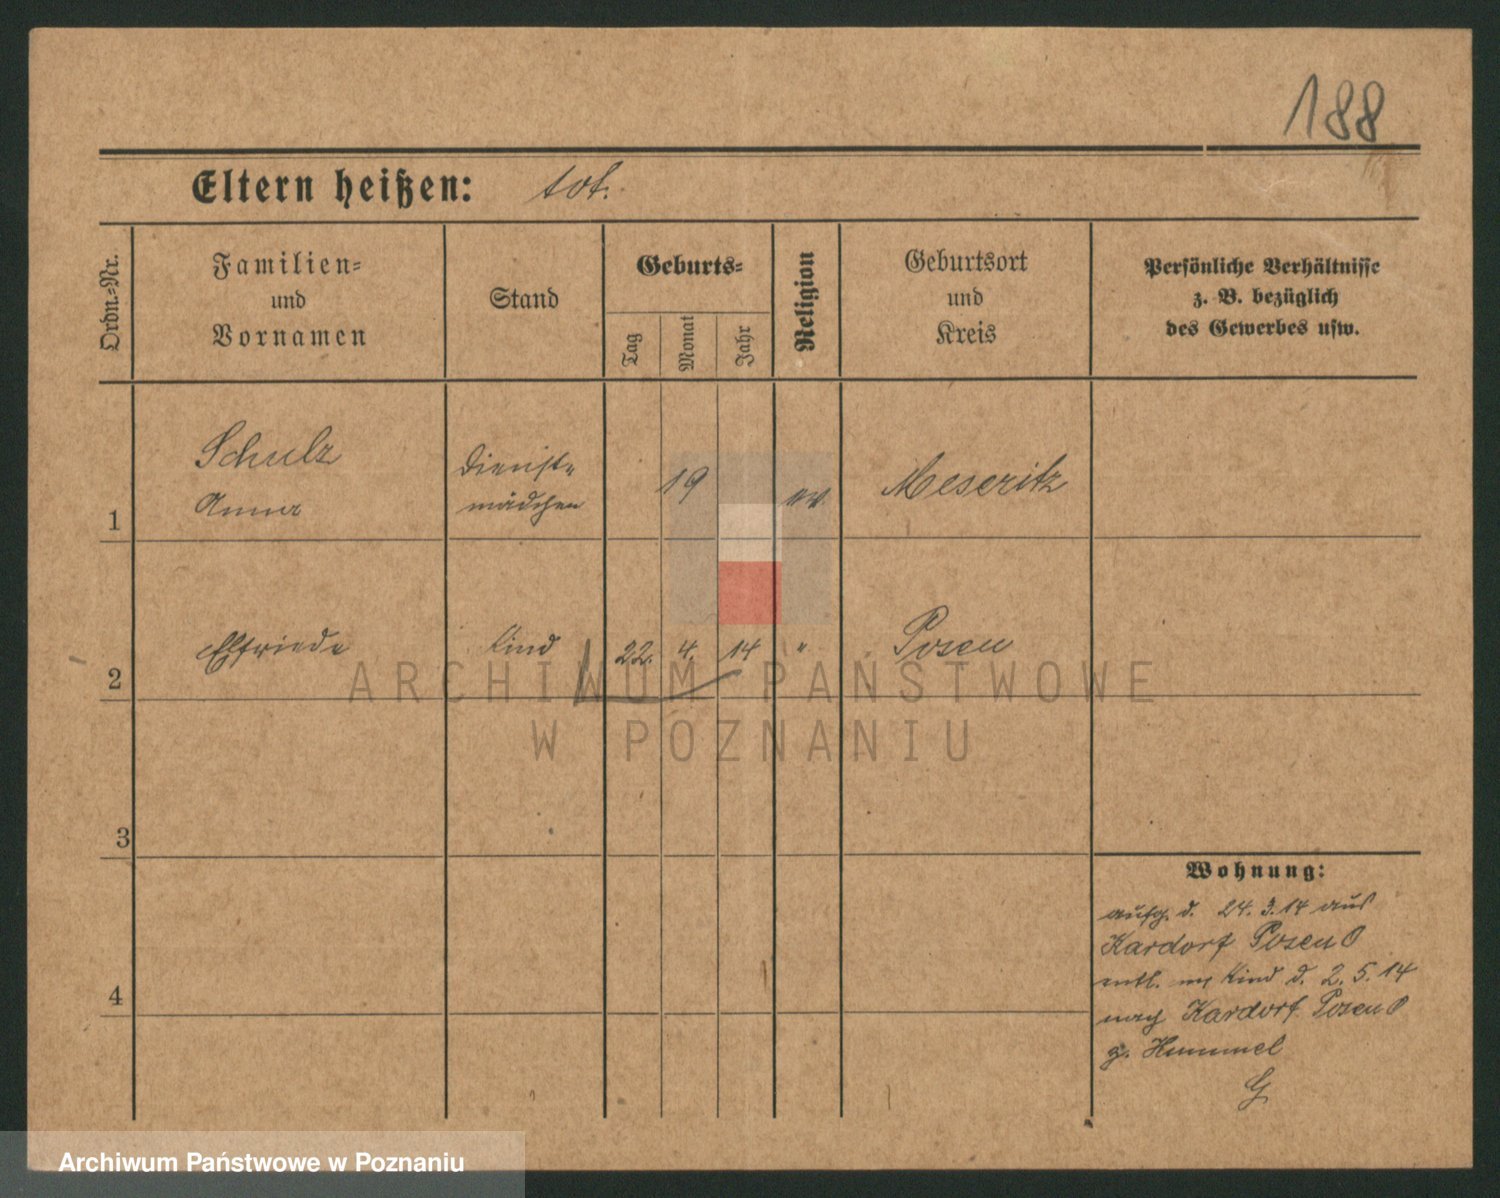 188
Eltern heißen: tot.
Ordn.-Nr.
Familien-
und
Vornamen
Stand
Geburts-
Tag
Monat
Jahr
Religion
Geburtsort
und
Kreis
Persönliche Verhältnisse
z. B. bezüglich
des Gewerbes usw.
1
Schulz
Anna
Dienst-
mädchen
19
ev.
Meseritz
2
Elfriede
Kind
22. 4. 14
"
Posen
ARCHIWUM PAŃSTWOWE
W POZNANIU
3
4
Wohnung:
aufg. d. 24. 3. 14 aus
Kardorf Posen O
entl. m Kind d. 2. 5. 14
nach Kardorf Posen O
g. Hummel
G
Archiwum Państwowe w Poznaniu